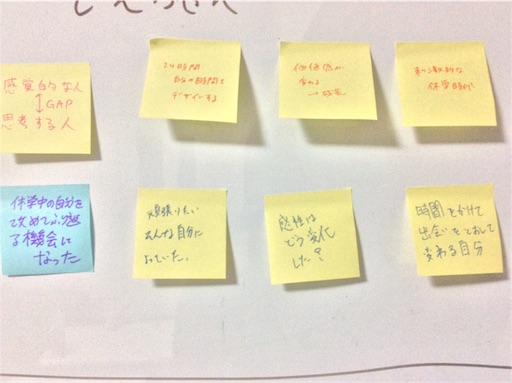 感覚的な人
↕GAP
思考する人
24時間
自分の時間を
デザインする
価値観が
変わる
→成長
刺激的な
休学時代
休学中の自分を
改めてふり返
る機会に
なった
頑張りたい
そんな自分に
なっていた。
感性は
どう変化
した?
時間をかけて
出会いをとおして
変わる自分